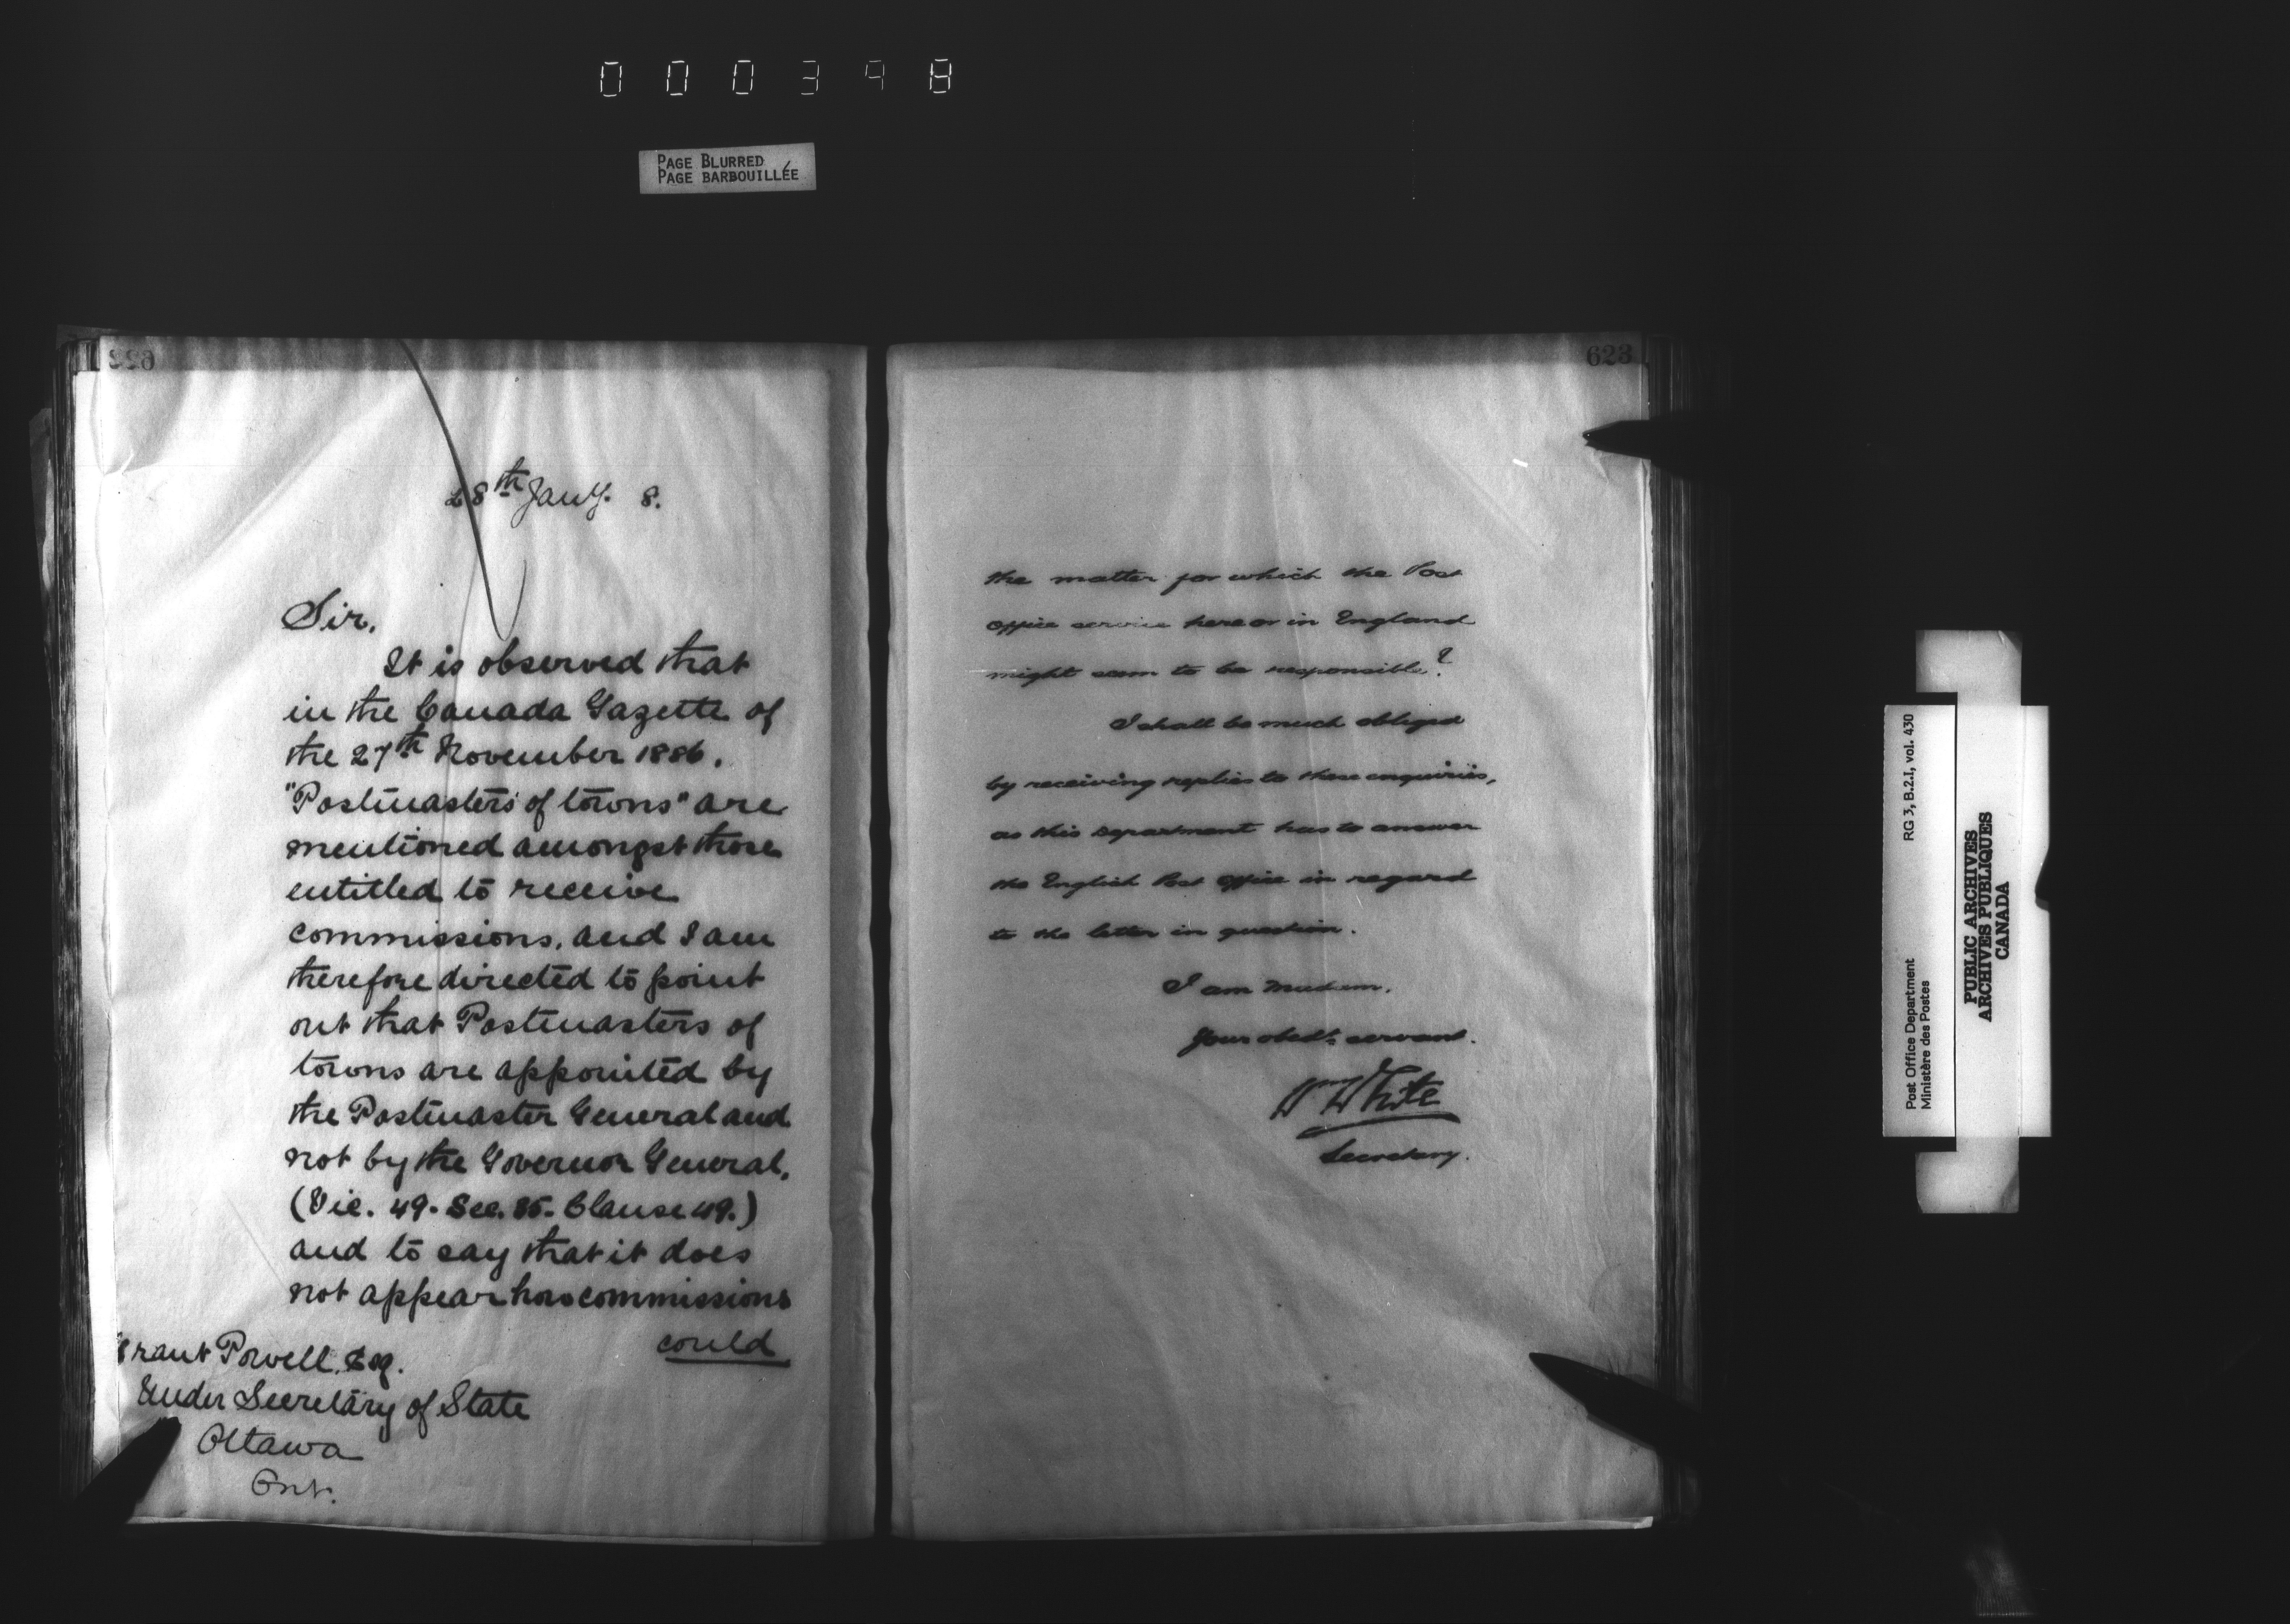 000398
PAGE BLURRED
PAGE BARBOUILLÉE
28th Jany. 8.
Sir,
It is observed that
in the Canada Gazette of
the 27th November 1886,
"Postmasters of towns" are
mentioned amongst those
entitled to receive
commissions, and I am
therefore directed to point
out that Postmasters of
towns are appointed by
the Postmaster General and
not by the Governor General,
(Vic. 49. Sec. 35. Clause 49.)
and to say that it does
not appear how commissions
could
Grant Powell, Esq.
Under Secretary of State
Ottawa
Ont.
623
the matter for which the Post
Office service here or in England
might seem to be responsible?
I shall be much obliged
by receiving replies to these enquiries,
as this Department has to answer
the English Post Office in regard
to the letter in question.
I am Madam,
Your obedt. servant.
Wm White
Secretary.
Post Office Department RG 3, B.2.I, vol. 430
Ministère des Postes
PUBLIC ARCHIVES
ARCHIVES PUBLIQUES
CANADA